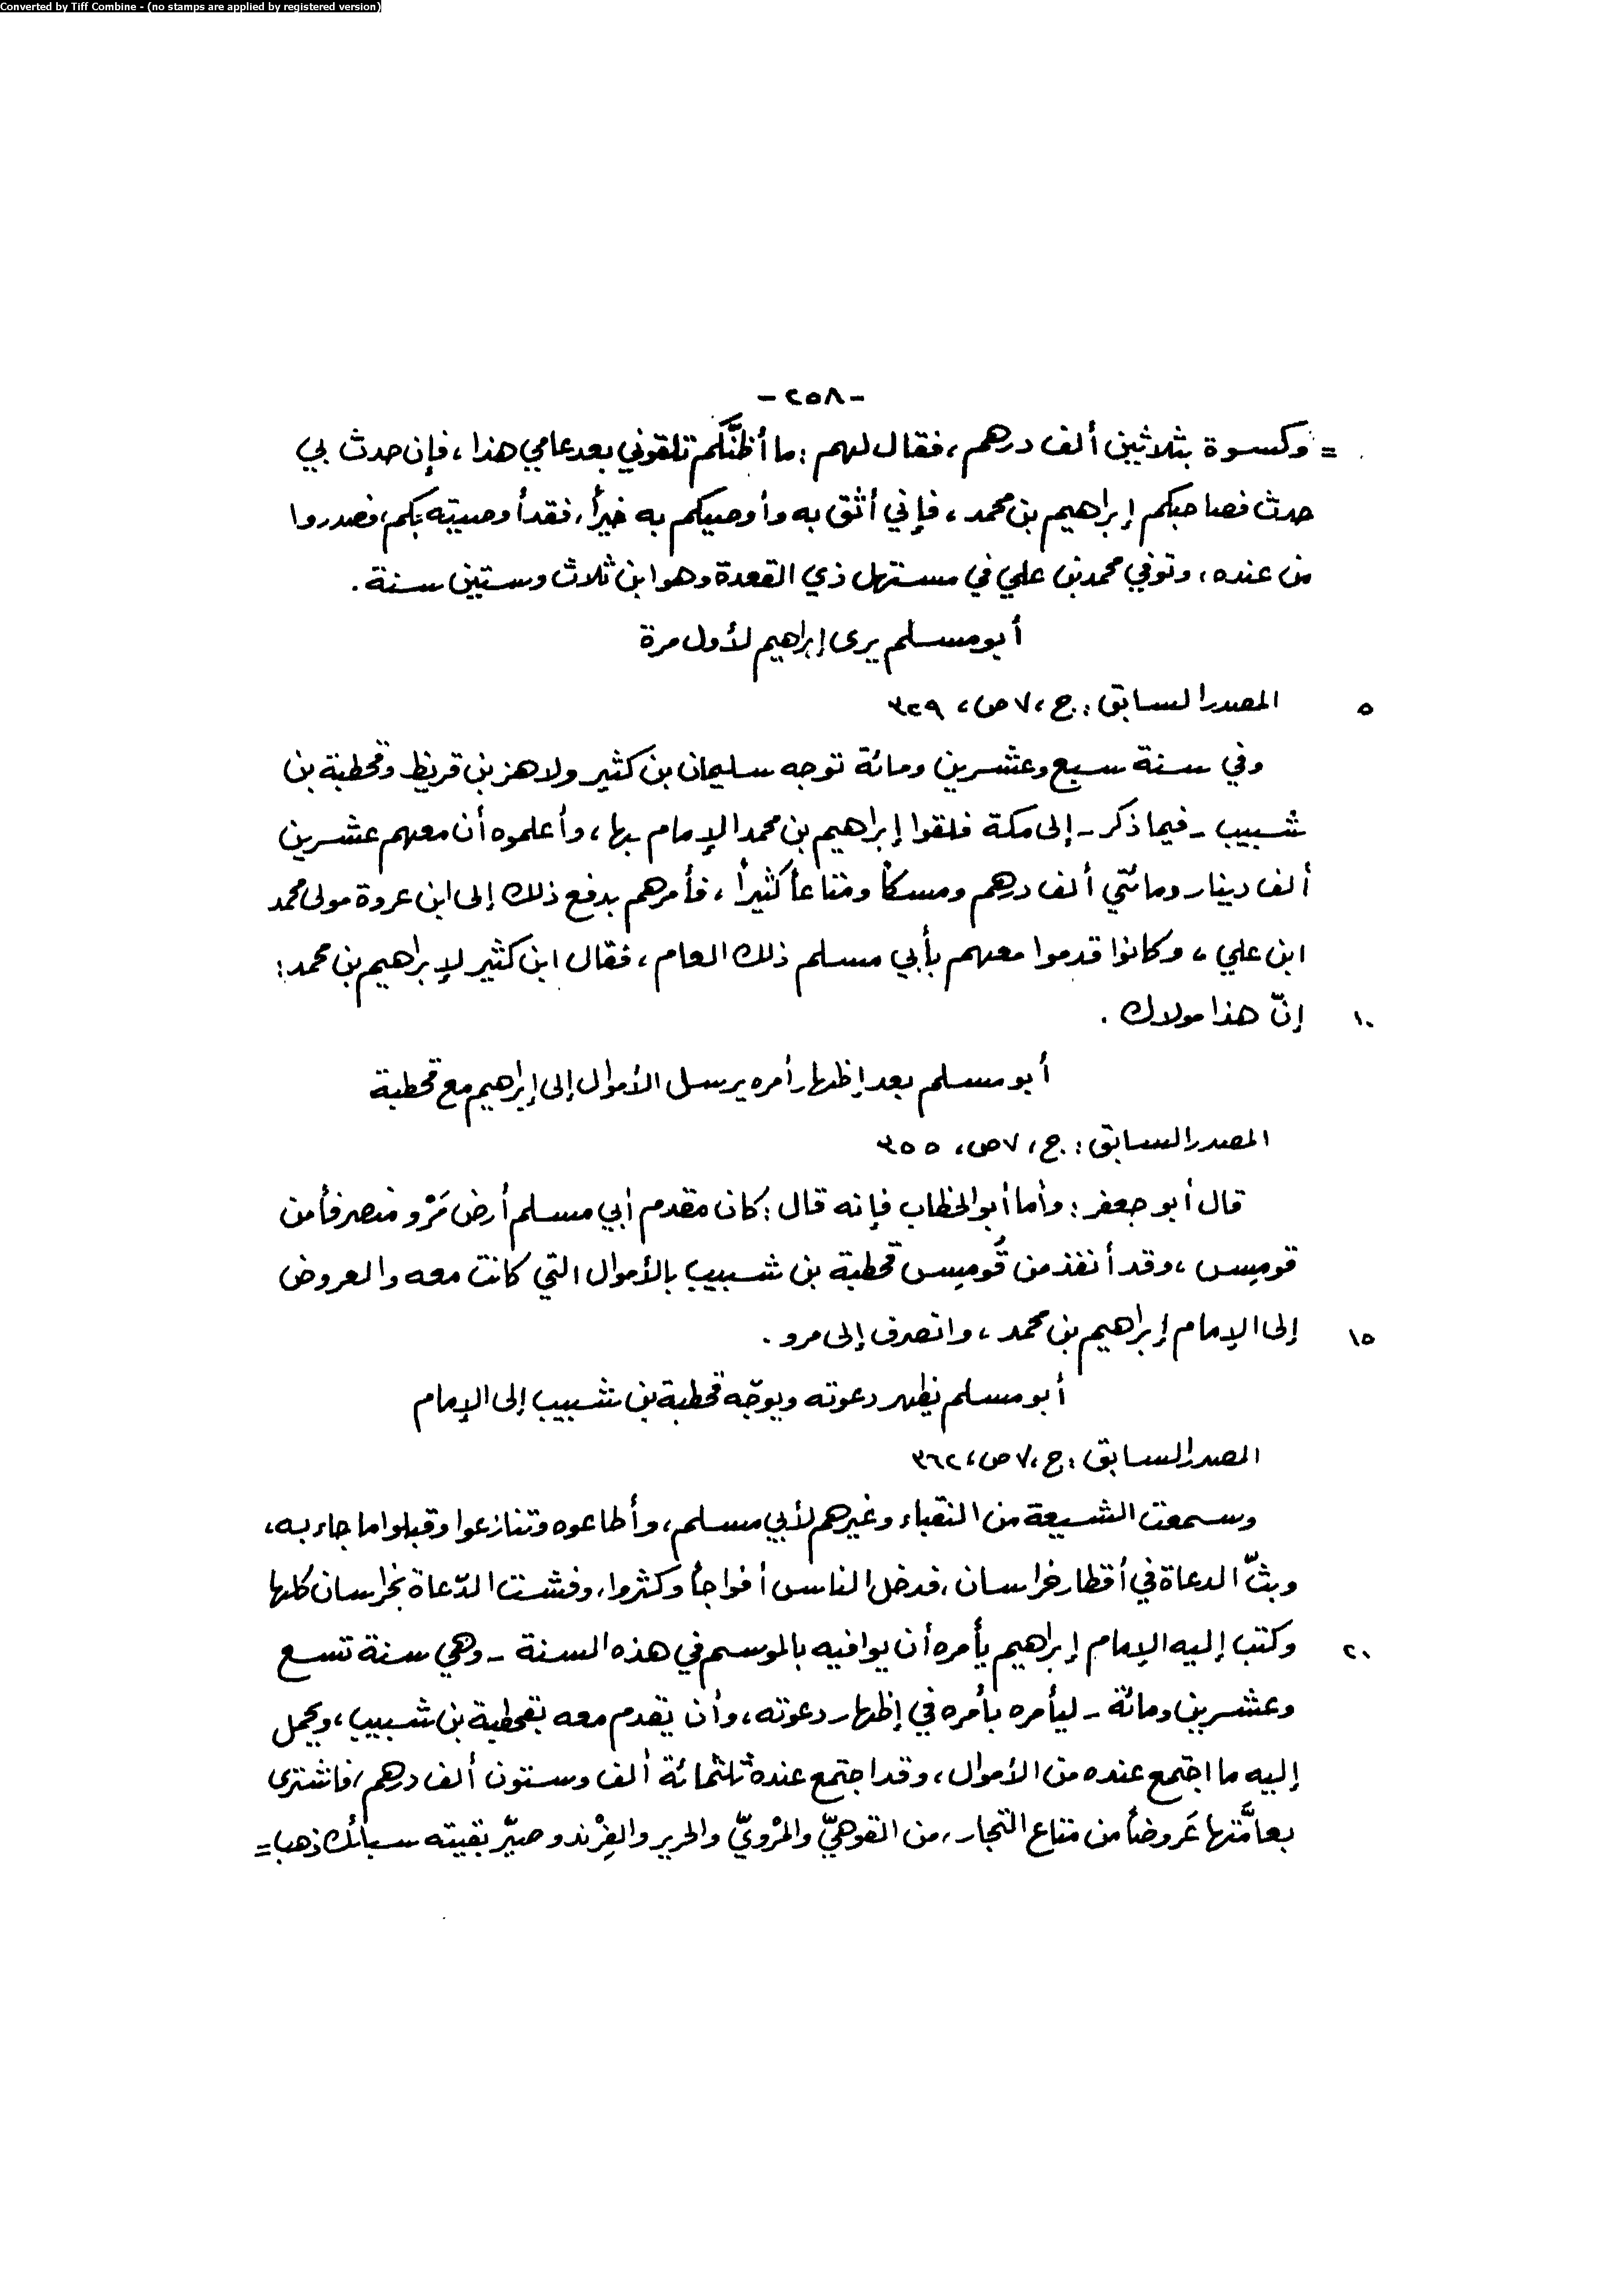 Converted by Tiff Combine - (no stamps are applied by registered version)
- ٢٥٨ -
= وكسوة بثلاثين ألف درهم، فقال لهم: ما أظنَّكم تلقوني بعد عامي هذا، فإن حدث بي
حدث فصاحبكم إبراهيم بن محمد، فإني أثق به وأوصيكم به خيراً، فقد أوصيته بكم، فصدروا
من عنده، وتوفي محمد بن علي في مستهل ذي القعدة وهو ابن ثلاث وستين سنة.
أبو مسلم يرى إبراهيم لأول مرة
٥ المصدر السابق: ج، ٧ ص، ٣٢٩
وفي سنة سبع وعشرين ومائة توجه سليمان بن كثير ولاهز بن قريظ وقحطبة بن
شبيب - فيما ذكر - إلى مكة فلقوا إبراهيم بن محمد الإمام بها، وأعلموه أن معهم عشرين
ألف دينار ومائتي ألف درهم ومسكاً ومتاعاً كثيراً، فأمرهم بدفع ذلك إلى ابن عروة مولى محمد
ابن علي، وكانوا قدموا معهم بأبي مسلم ذلك العام، فقال ابن كثير لإبراهيم بن محمد:
١٠ إنّ هذا مولاك.
أبو مسلم بعد إظهار أمره يرسل الأموال إلى إبراهيم مع قحطبة
المصدر السابق: ج، ٧ ص، ٣٥٥
قال أبو جعفر: وأما أبو الخطاب فإنه قال: كان مقدم أبي مسلم أرض مَرْو منصرفاً من
قوميس، وقد أنفذ من قُوميس قحطبة بن شبيب بالأموال التي كانت معه والعروض
١٥ إلى الإمام إبراهيم بن محمد، وانصرف إلى مرو.
أبو مسلم يظهر دعوته ويوجّه قحطبة بن شبيب إلى الإمام
المصدر السابق: ج، ٧ ص، ٣٦٢
وسمعت الشيعة من النقباء وغيرهم لأبي مسلم، وأطاعوه وتنازعوا وقبلوا ما جاء به،
وبثّ الدعاة في أقطار خراسان، فدخل الناس أفواجاً وكثروا، وفشت الدّعاة بخراسان كلها
٢٠ وكتب إليه الإمام إبراهيم يأمره أن يوافيه بالموسم في هذه السنة - وهي سنة تسع
وعشرين ومائة - ليأمره بأمره في إظهار دعوته، وأن يقدم معه بقحطبة بن شبيب، ويحمل
إليه ما اجتمع عنده من الأموال، وقد اجتمع عنده ثلثمائة ألف وستون ألف درهم، فاشترى
بعامَّتها عَروضاً من متاع التجار، من القوهيّ والمَرْويّ والحرير والفِرْند وصيّر بقيته سبائك ذهب =